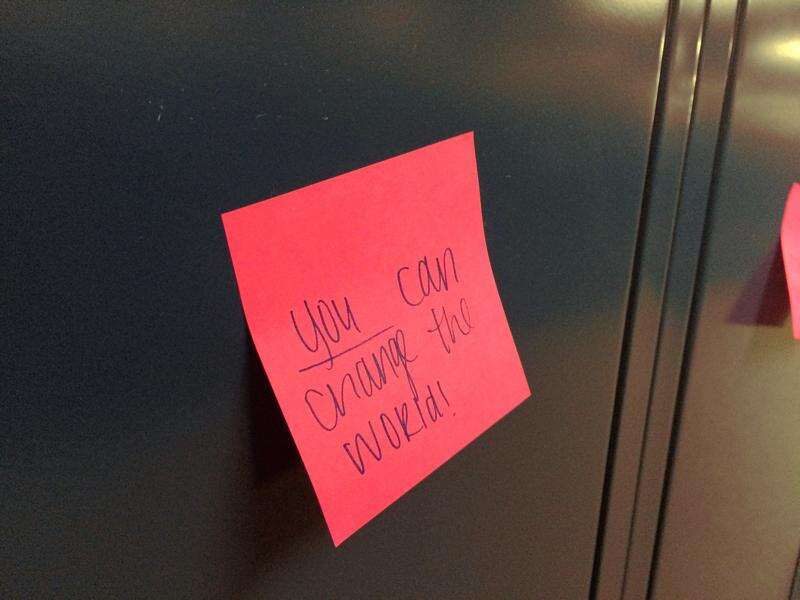 you can
change the
world!